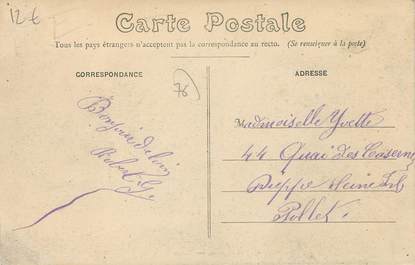 12€
Carte Postale
Tous les pays étrangers n'acceptent pas la correspondance au recto. (Se renseigner à la poste)
CORRESPONDANCE
76
ADRESSE
Bonjour de loin
Robert
Mademoiselle Yvette
44 Quai des
Dieppe Seine Inf
Pollet